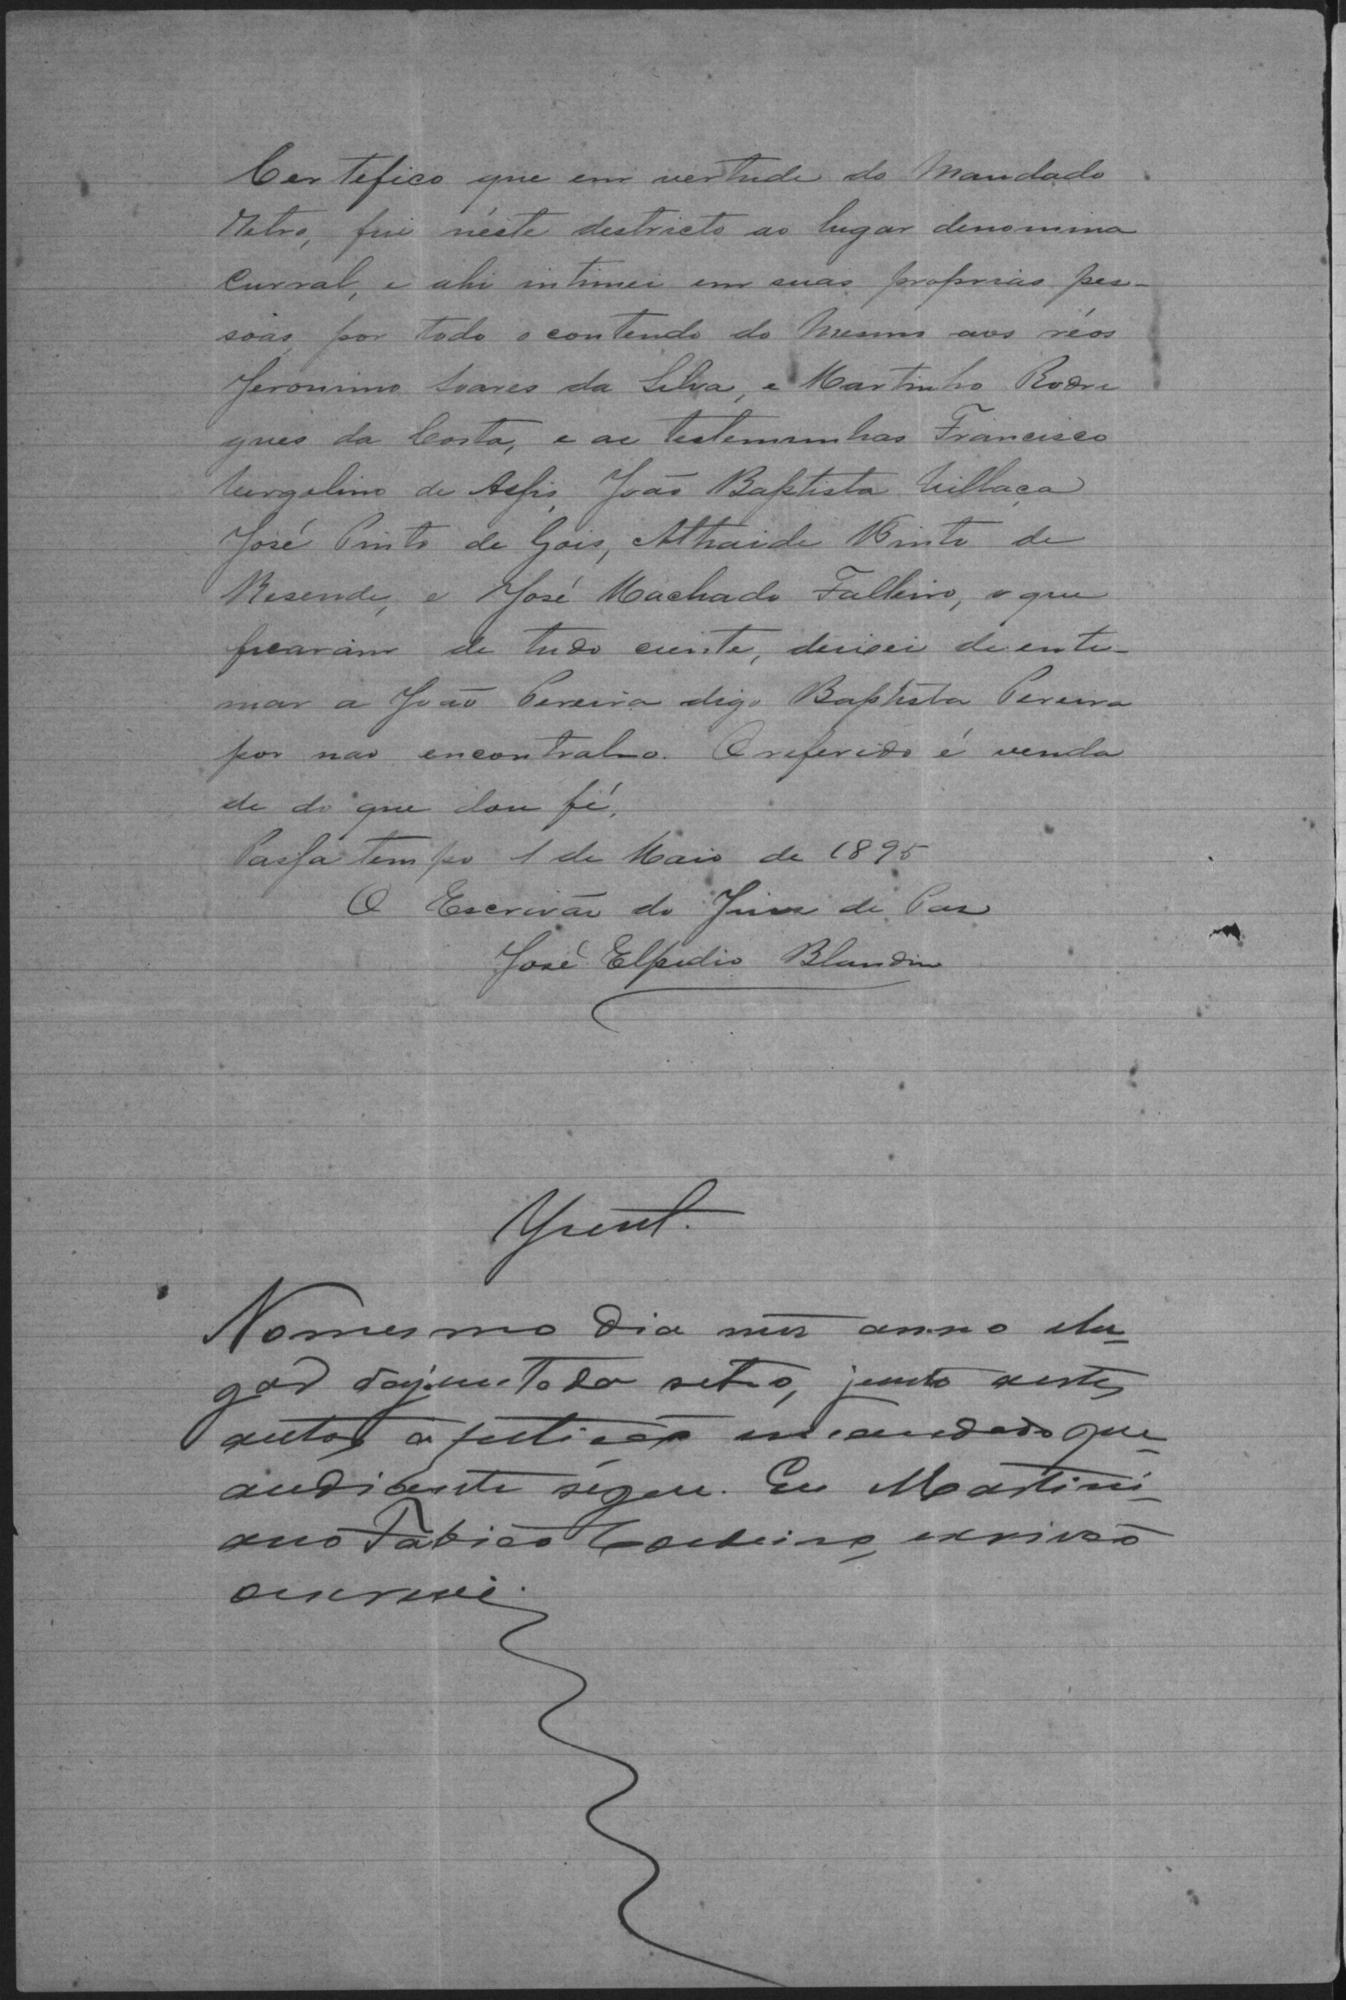 Certefico que em vertude do Mandado
Retro, fui néste destricto ao lugar denomina
Curral, e ahi intimei em suas proprias pes-
soas por todo o contendo do Mesmo aos réos
Jeronimo Soares da Silva, e Martinho Rodri
gues da Costa, e as testemunhas Francisco
Vergolino de Assis, João Baptista Villaça
José Pinto de Gois, Athaide Pinto de
Resende, e José Machado Falleiro, o que
ficaram de tudo ciente, deixei de inti-
mar a João Pereira digo Baptista Pereira
por nao encontralo. O referido é verda
de do que dou fé.
Passa tempo 1 de Maio de 1895
O Escrivão do Juiz de Paz
José Elpidio Blandin
Junt.
No mesmo dia mez anno e lu-
gar da juntada retro, junto a estes
autos a petição e mandado que
audiante segue. Eu Martini-
ano Fabião Cordeiro, escrivão
o escrevi.